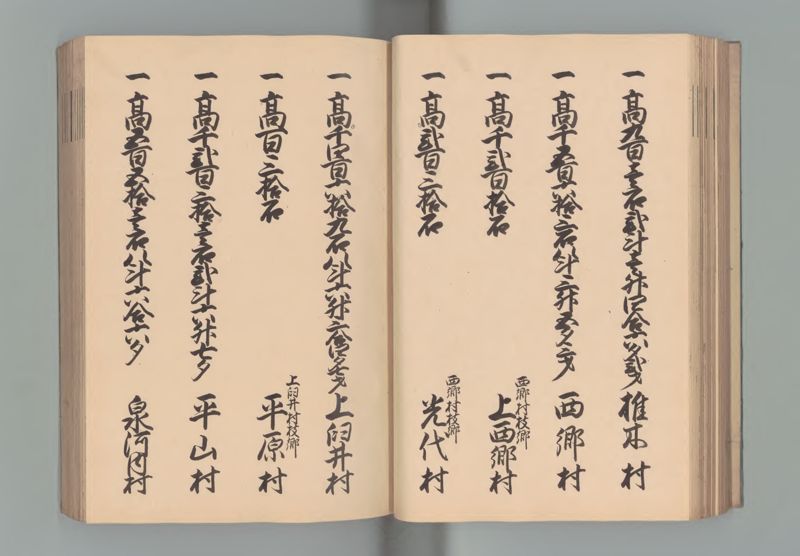 一 高九百壱石弐斗壱升四合六夕弐才 椎木村
一 高千五百六拾三石八斗三升五夕三才 西郷村
一 高千弐百拾石 西郷村枝郷 上西郷村
一 高弐百三拾石 西郷村枝郷 光代村
一 高千四百六拾九石八斗六升三合四夕七才 上臼井村
一 高百三拾石 上臼井村枝郷 平原村
一 高千弐百三拾壱石弐斗六升七夕 平山村
一 高五百五拾壱石八斗六合六夕 泉河内村